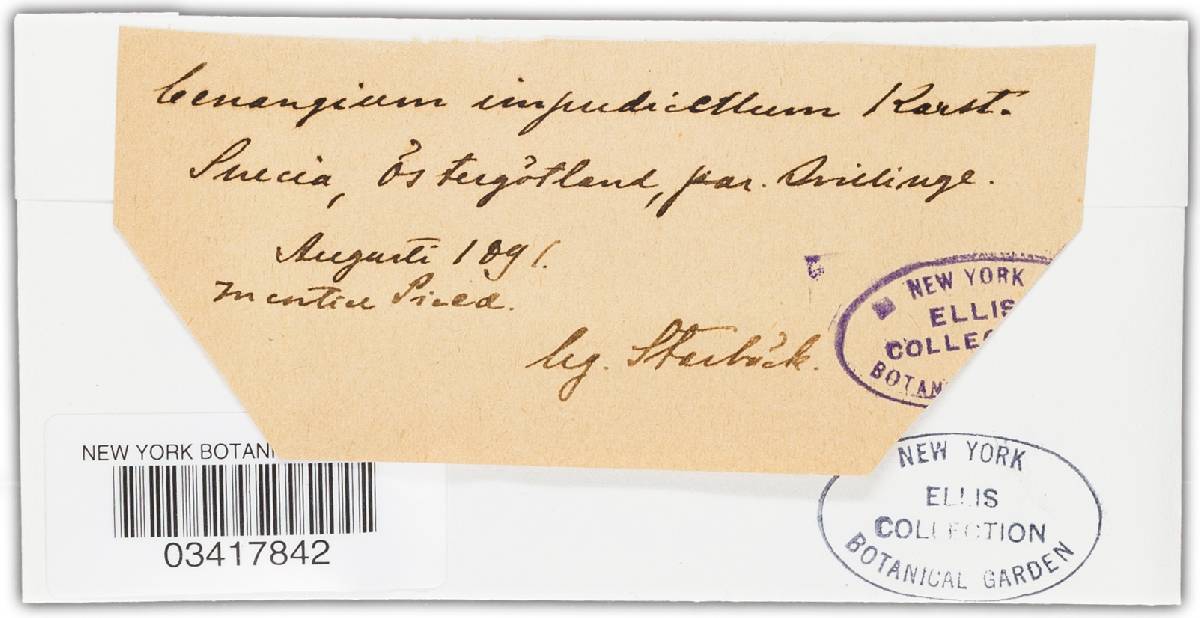 Cenangium impudicellum Karst.
Suecia, Östergötland, par. Svillinge.
Augusti 1891.
in cortice Piceæ.
leg. Starbäck.
NEW YORK
ELLIS
COLLEC
BOTAN
NEW YORK BOTANI
03417842
NEW YORK
ELLIS
COLLECTION
BOTANICAL GARDEN